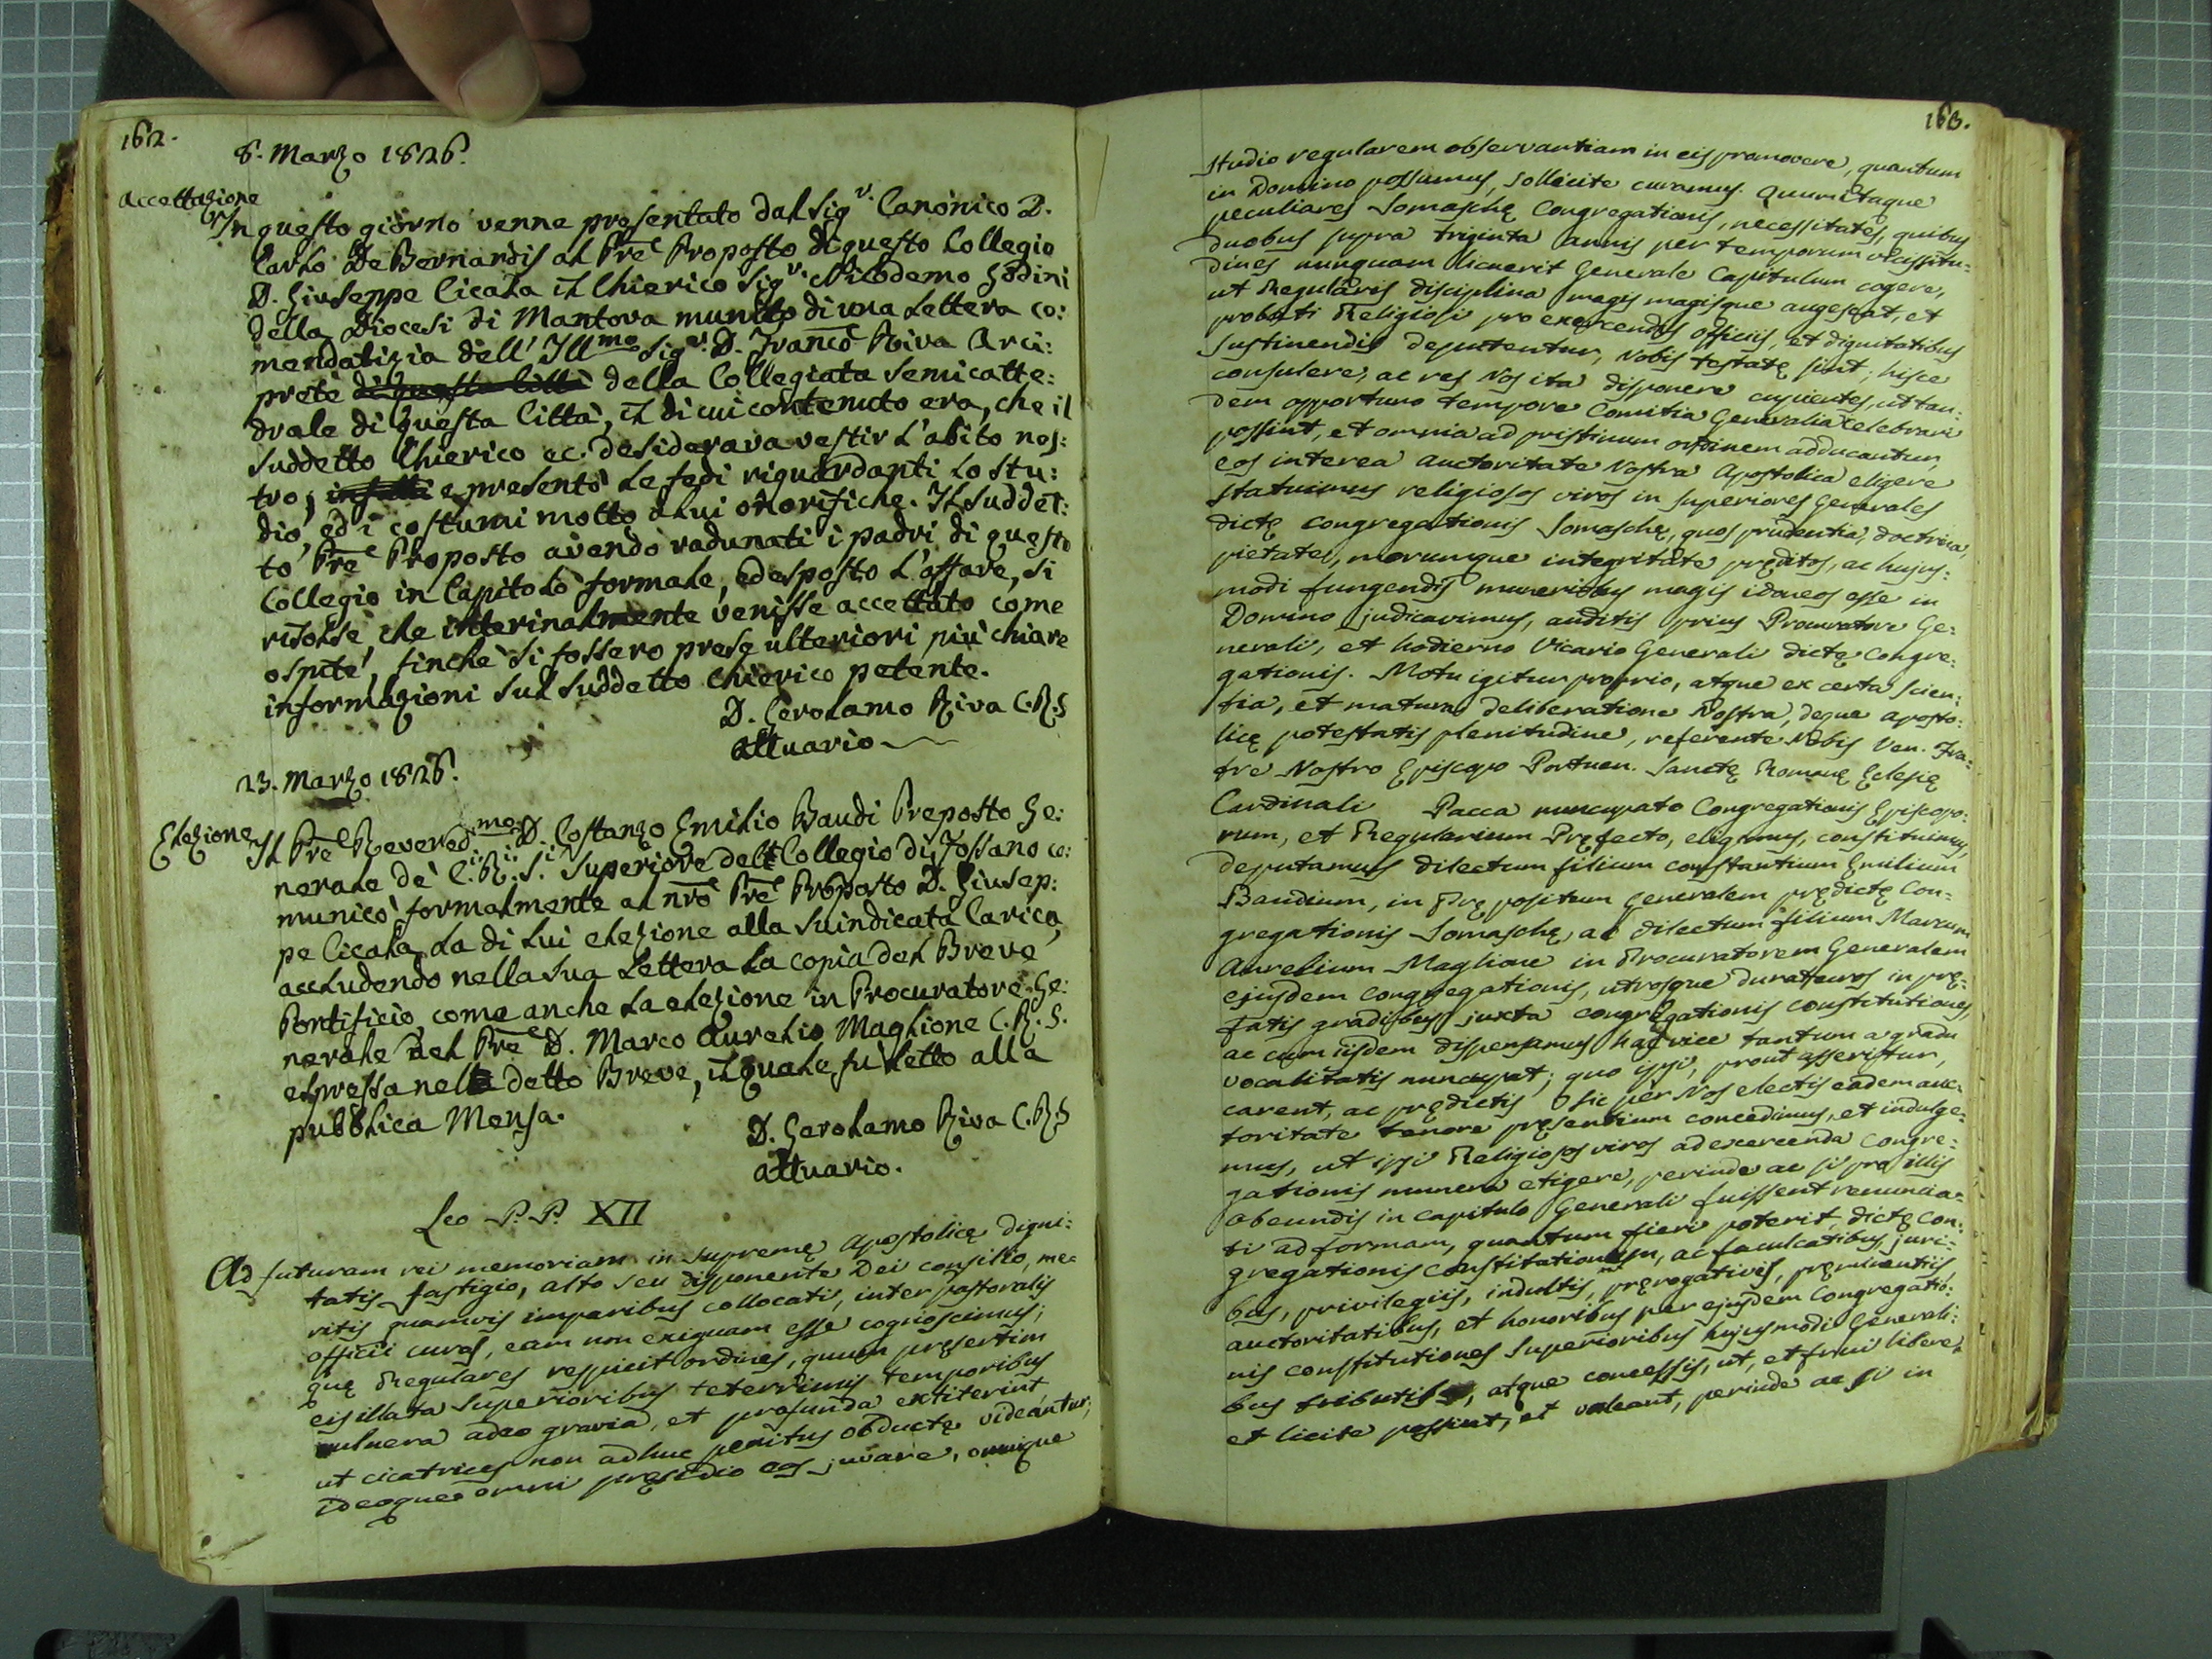 162.
8. Marzo 1826.
Accettazione
In questo giorno venne presentato dal Sig.r Canonico D.
Carlo De Bernardis al Pre Proposto di questo Collegio
D. Giuseppe Cicala il Chierico Sig.r Nicodemo Godini
della Diocesi di Mantova munito di una Lettera co:
mendatizia dell' Ill.mo Sig.r D. Franco Riva Arci:
prete di questa Città della Collegiata Semicatte:
drale di questa Città, il di cui contenuto era, che il
suddetto Chierico ec. desiderava vestir l'abito nos:
tro; infatti e presentò le fedi riguardanti lo stu:
dio, ed i costumi molto a lui onorifiche. Il suddet:
to Pre Proposto avendo radunati i padri di questo
Collegio in Capitolo formale, ed esposto l'affare, si
risolse, che interinalmente venisse accettato come
ospite, finchè si fossero prese ulteriori più chiare
informazioni sul suddetto Chierico petente.
D. Gerolamo Riva C.R.S
attuario
23. Marzo 1826.
Elezione
Il Pre Revered.mo D. Costanzo Emilio Baudi Preposto Ge:
nerale de' C. R. S. Superiore del Collegio di Fossano co:
municò formalmente al nro Pre Proposto D. Giusep:
pe Cicala la di lui elezione alla suindicata Carica,
accludendo nella sua Lettera la copia del Breve
Pontificio, come anche la elezione in Procuratore Ge:
nerale del Pre D. Marco Aurelio Maglione C. R. S.
espressa nel detto Breve, il quale fu letto alla
pubblica Mensa.
D. Gerolamo Riva C.R.S
attuario.
Leo P.P. XII
Ad futuram rei memoriam in supremę Apostolicę digni:
tatis fastigio, alto seu disponente Dei consilio, me=
ritis quamvis imparibus collocati, inter pastoralis
officii curas, eam non exiguam esse cognoscimus,
quę Regulares respicit ordines, quum pręsertim
eis illata superioribus teterrimis temporibus
vulnera adeo gravia, et profunda extiterint,
ut cicatrices non adhuc penitus obductę videantur;
ideoque omni pręsidio eos juvare, omnique
163.
studio regularem observantiam in eis promovere, quantum
in Domino possumus, sollicite curamus. Quum itaque
peculiares Somaschę Congregationis, necessitates, quibus
duobus supra triginta annis per temporum vicissitu=
dines nunquam licuerit Generale Capitulum cogere,
ut Regularis disciplina magis magisque augescat, et
probati Religiosi pro exercendis officiis, et dignitatibus
sustinendis deputentur, Nobis testatę sint; hisce
consulere, ac res Nos ita disponere cupientes, ut tan:
dem opportuno tempore Comitia Generalia celebrari
possint, et omnia ad pristinum ordinem adducantur,
eos interea auctoritate Nostra Apostolica eligere
statuimus religiosos viros in superiores Generales
dictę congregationis Somaschę, quos prudentia, doctrina,
pietate, morumque integritate pręditos, ac hujus:
modi fungendis muneribus magis idoneos esse in
Domino judicavimus, auditis prius Procuratore Ge:
nerali, et hodierno Vicario Generali dictę Congre:
gationis. Motu igitur proprio, atque ex certa scien:
tia, et matura deliberatione Nostra, deque aposto:
licę potestatis plenitudine, referente Nobis Ven. Fra:
tre Nostro Episcopo Portuen. Sanctę Romanę Eclesię
Cardinali Pacca nuncupato Congregationis Episcopo:
rum, et Regularium Pręfecto, eligimus, constituimus,
deputamus dilectum filium constantium Emilium
Baudium, in Prępositum Generalem prędictę Con=
gregationis Somaschę, ac dilectum filium Marcum
Aurelium Maglione in Procuratorem Generalem
ejusdem congregationis, utrosque duraturos in prę=
fatis gradibus juxta congregationis constitutiones,
ac cum iisdem dispensamus hac vice tantum a gradu
vocalitatis nuncupat; quo ipsi, prout asseritur,
carent, ac prędictis sic per Nos electis eadem auc=
toritate tenore pręsentium concedimus, et indulge=
mus, ut ipsi Religiosos viros ad exercenda Congre=
gationis munera eligere, perinde ac si pro illis
obeundis in capitulo Generali fuissent renuncia=
ti ad formam, quantum fieri poterit, dictę Con:
gregationis Constitutionum, ac facultatibus, juri=
bus, privilegiis, indultis, pręrogativis, pręminentiis,
auctoritatibus, et honoribus per ejusdem Congregatio:
nis constitutiones Superioribus hujusmodi Generali:
bus tributis, atque concessis, ut, et frui libere,
et licite possint, et valeant, perinde ac si in